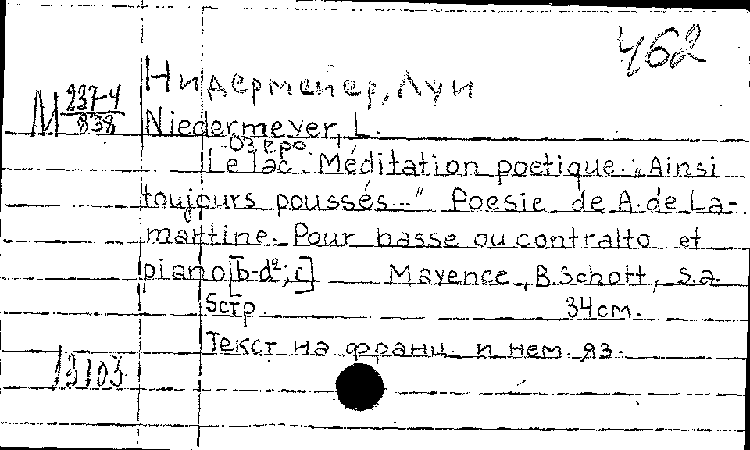 462
Нидермейер, Луи
М 237-4
838
Niedermeyer, L.
Озеро
Le lac. Méditation poetique. "Ainsi
toujours poussés..." Poesie de A. de La-
martine. Pour basse ou contralto et
piano [b-d²; c] Mayence, B. Schott, s.a.
5 стр. 34 см.
Текст на франц. и нем. яз.
13103